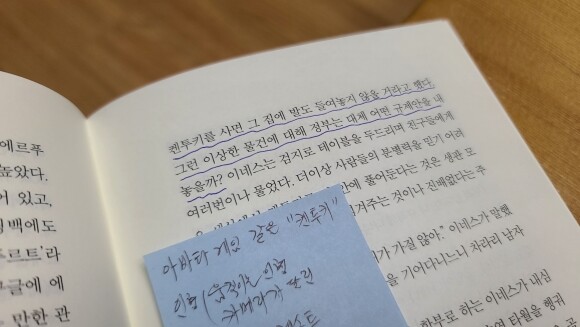 에르푸
높았다.
있고,
백에도
르트'라
글에 에
만한 관
켄투키를 사면 그 집에 발도 들여놓지 않을 거라고 했다.
그런 이상한 물건에 대해 정부는 대체 어떤 규제안을 내
놓을까? 이네스는 검지로 테이블을 두드리며 친구들에게
여러번이나 물었다. 더이상 사람들의 분별력을 믿기 어려
안에 풀어둔다는 것은 생판 모
겨주는 것이나 진배없다는 주
가 가질 않아." 이네스가 말했
을 기어다니느니 차라리 남자
하부로 하는 이네스가 내심
여 타월을 행궈
아바타 게임 같은 "켄투키"
인형 (움직이는 인형
카메라가 달린